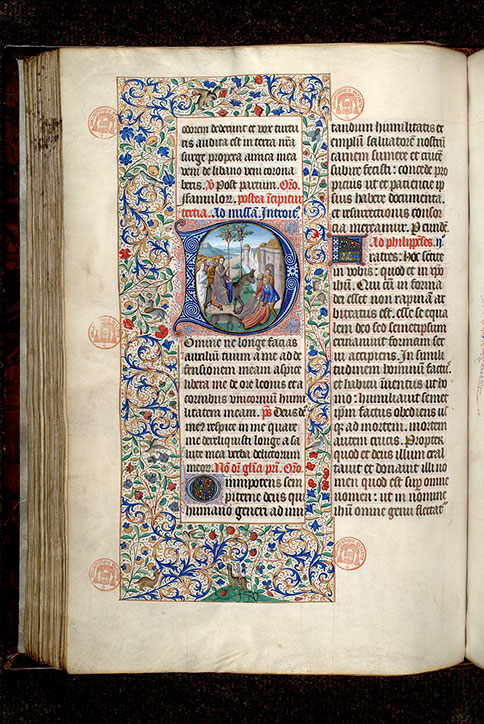 odorem dederunt et vox turtu
ris audita est in terra nr̄a
surge propera amica mea
veni de libano veni corona
beris. Post partum. Or̄o.
famulor. postea incipitur
tertia. Ad missam. Introit̄.
Domine ne longe facias
auxilium tuum a me ad de
fensionem meam aspice
libera me de ore leonis et a
cornibus unicornium humi
litatem meam. p̄s Deus de⁹
me9 respice in me quare
me dereliquisti longe a sa
lute mea verba delictorum
meor. No dr̄ glīa pri. Or̄o.
Omnipotens sem
piterne deus qui
humano generi ad imi
tandum humilitatis ex
emplum salvatorē nostrū
carnem sumere et crucē
subire fecisti: concede pro
picius ut et paciencie ip
sius habere documenta
et resurrectionis consor
cia mereamur. P eundē.
Ad philipēses. ij
Fratres: Hoc senti
te in vobis: quod et in xp̄o
ihū. Qui cū in forma
dei esset non rapinā ar
bitratus est. esse se equa
lem deo sed semetipsum
exinanivit formam ser
vi accipiens. In simili
tudinem hominū factus
et habitu inventus ut ho
mo: humiliavit semet
ip̄m factus obediens us
qz ad mortem. mortem
autem crucis. Propter
quod et deus illum exal
tavit et donavit illi no
men quod est sup omne
nomen: ut in nomine
ihū omne genu flectat̄